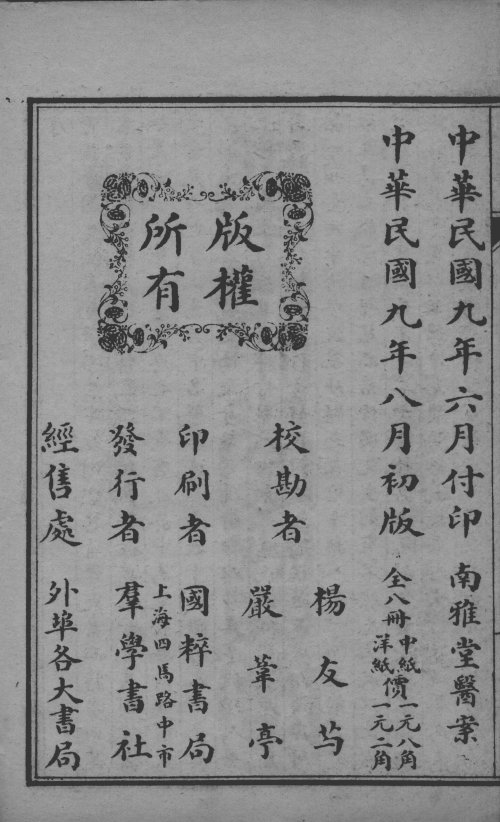 中華民國九年六月付印 南雅堂醫案
中華民國九年八月初版 全八冊 中紙 洋紙 價 一元八角 一元二角
版權
所有
校勘者 楊友芍 嚴葦亭
印刷者 國粹書局
上海四馬路中市
發行者 羣學書社
經售處 外埠各大書局